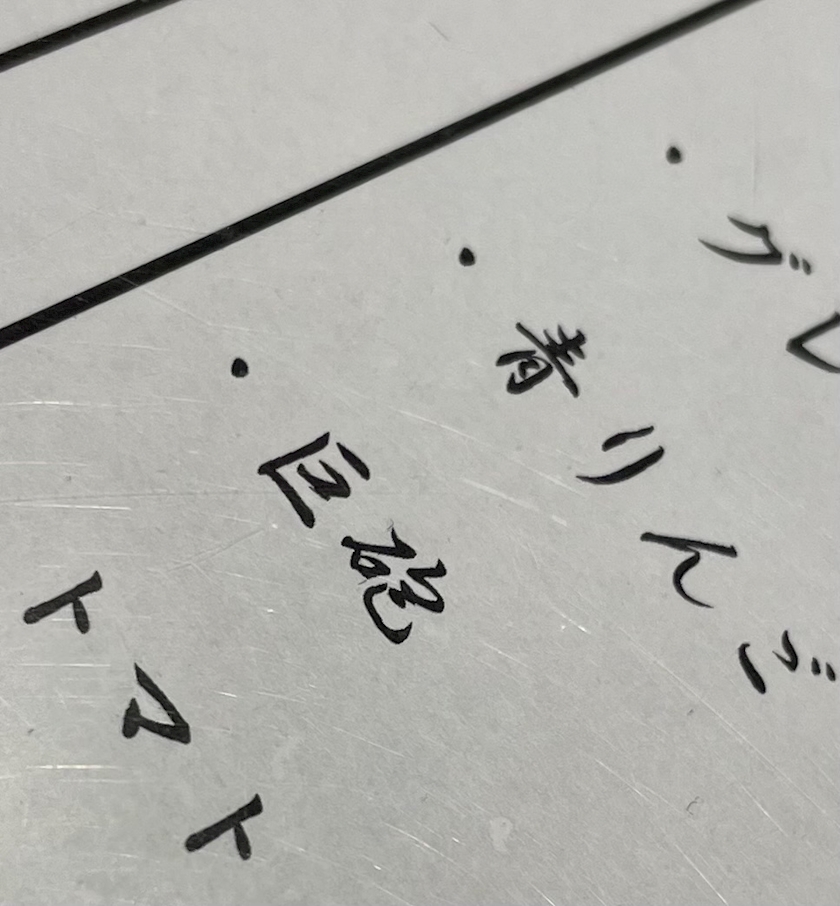 ・グレ
・青りんご
・巨砲
トマト